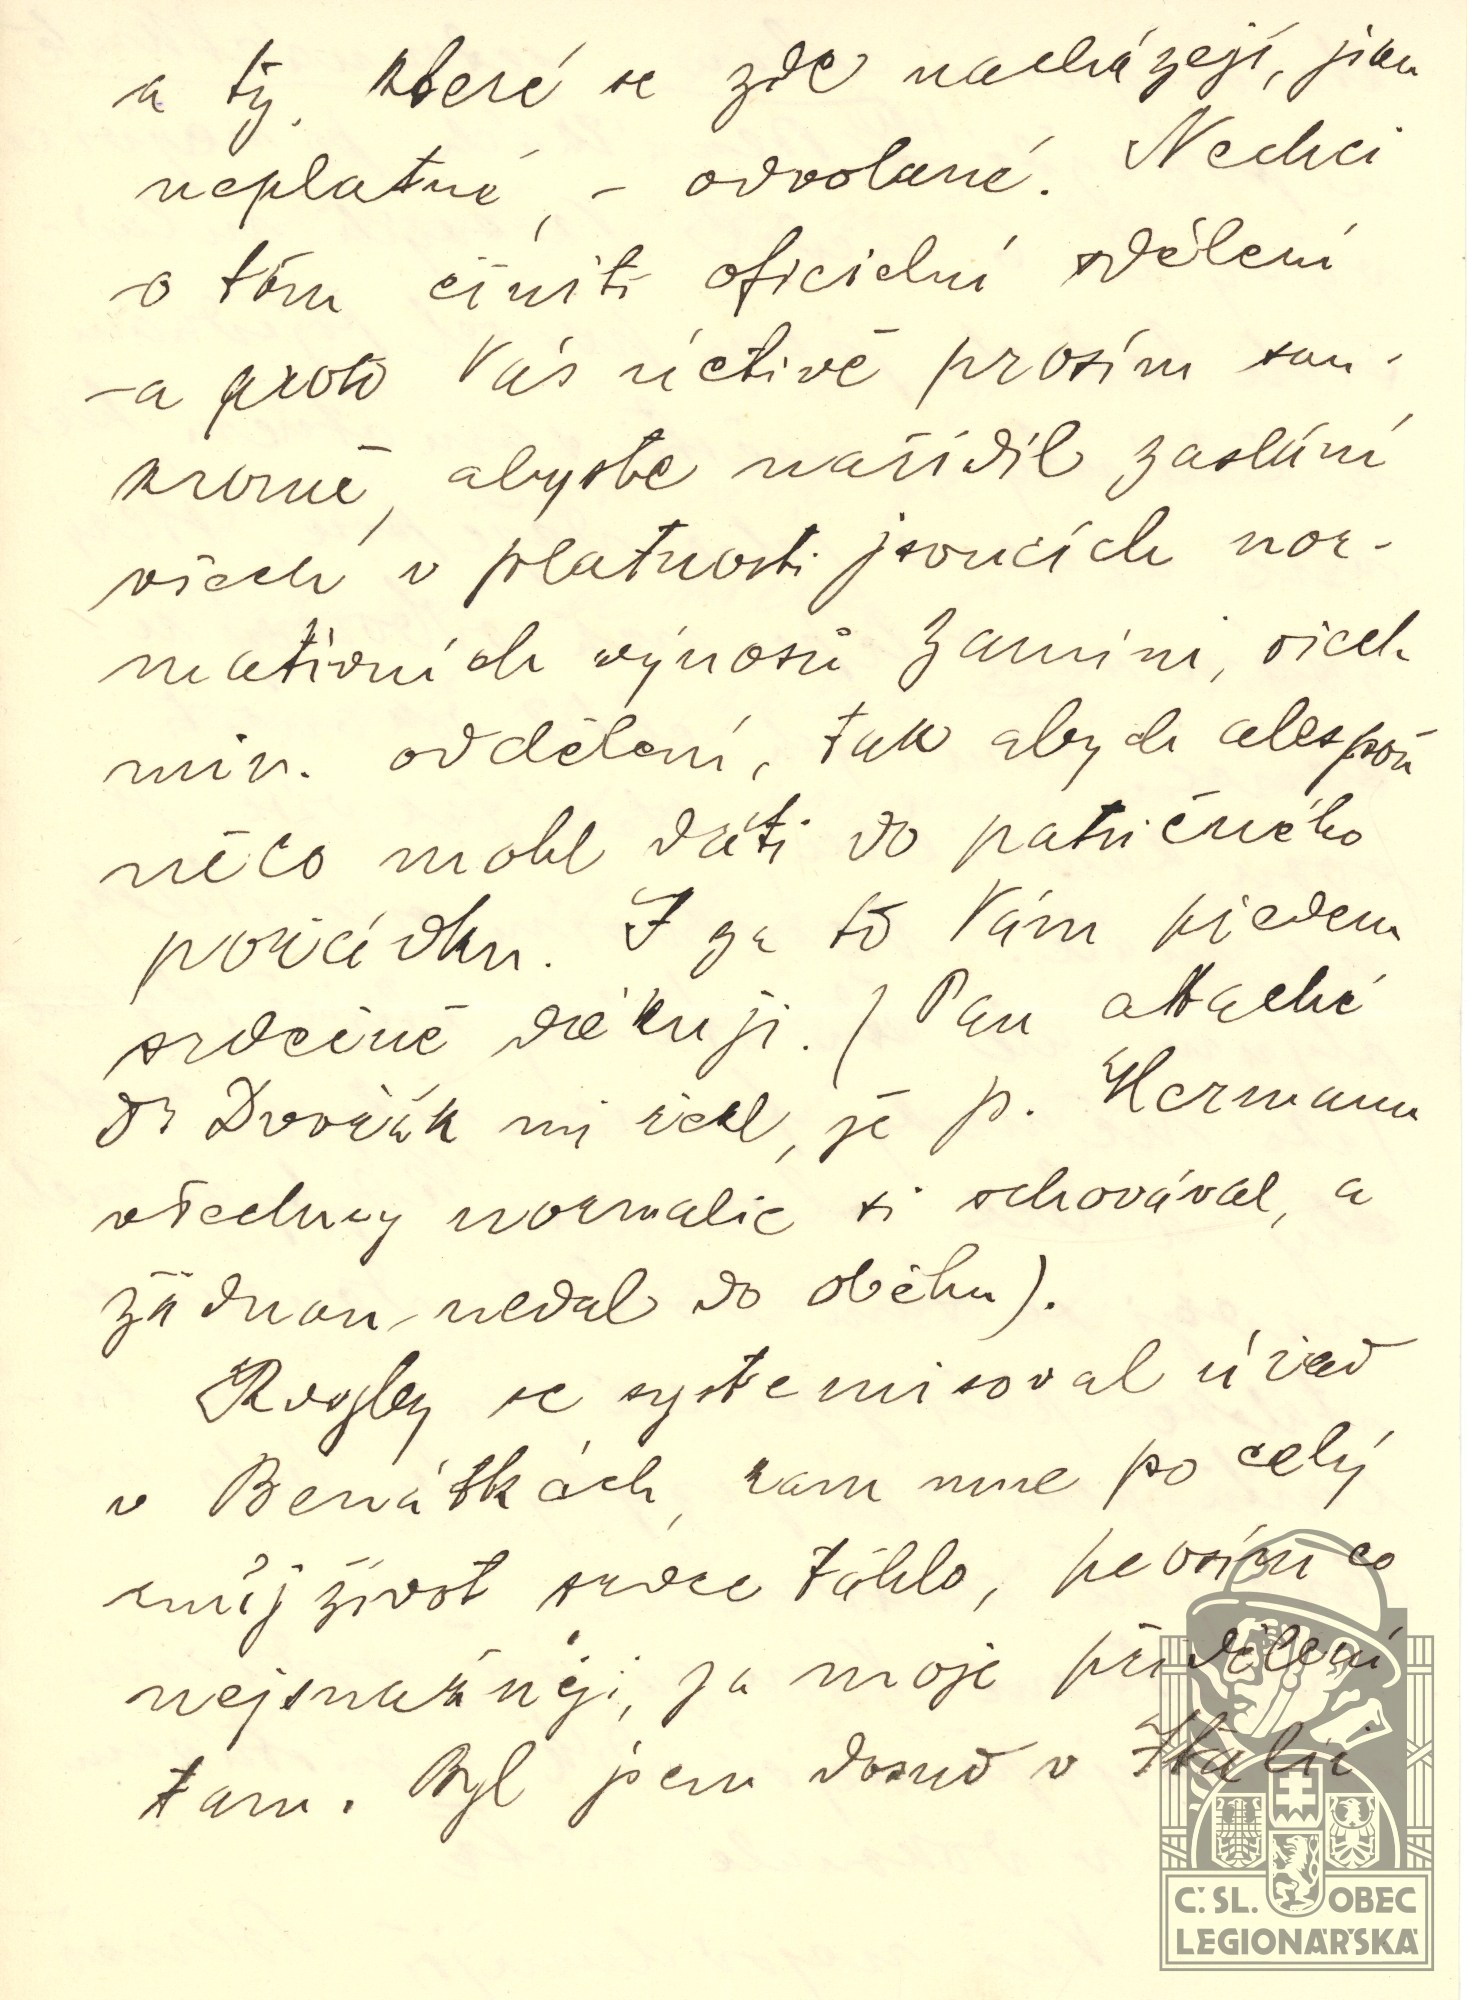 a ty, které se zde nacházejí, jsou
neplatné, - odvolané. Nechci
o tom činiti oficielní sdělení
-a proto Vás uctivě prosím sou-
kromě, abyste nařídil zaslání
všech v platnosti jsoucích nor-
mativních výnosů zamini, všech
min. oddělení, tak abych alespoň
něco mohl dáti do patřičného
pořádku. I za to Vám předem
srdečně děkuji. (Pan attaché
Dr Dvořák mi řekl, že p. Hermann
všechny normalie si schovával, a
žádnou nedal do oběhu).
Kdyby se systemisoval úřad
v Benátkách, kam mne po celý
můj život srdce táhlo, prosím co
nejsnažněji, za moje přidělení
tam. Byl jsem dosud v Italii
Č.SL. OBEC
LEGIONÁŘSKÁ